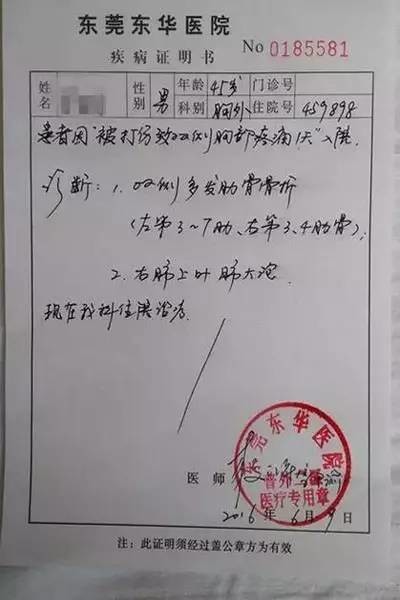 东莞东华医院
疾病证明书
No 0185581
姓名 性别 男 年龄 45岁 门诊号
科别 胸外 住院号 459898
患者因"被打伤致双侧胸部疼痛1天"入院.
诊断：1. 双侧多发肋骨骨折
(左第3~7肋、右第3、4肋骨);
2. 右肺上叶肺大泡.
现在我科住院治疗.
东莞东华医院
普外二区
医疗专用章
医师
2016年6月9日
注：此证明须经过盖公章方为有效